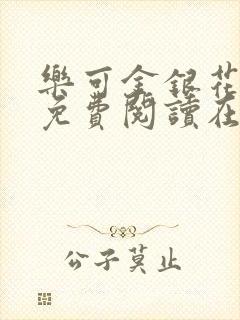 樂可金銀花
免費閱讀在
公子莫止